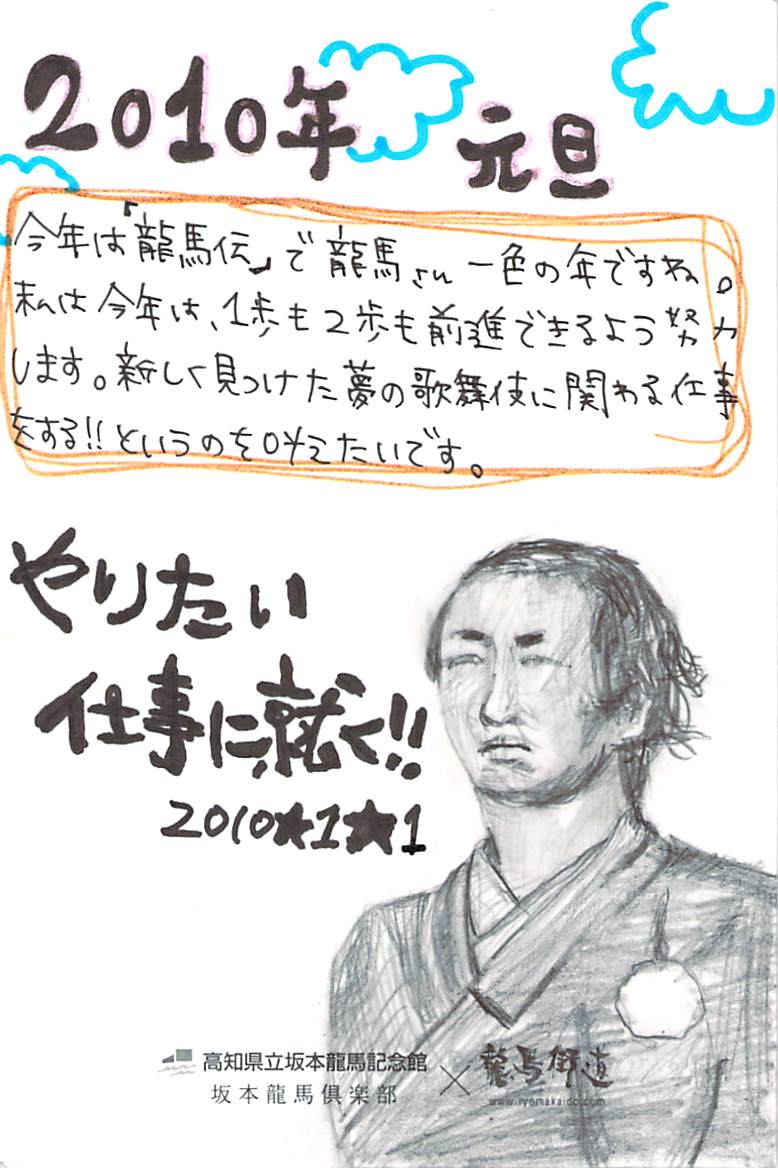 2010年 元旦
今年は「龍馬伝」で龍馬さん一色の年ですね。
私は今年は、1歩も2歩も前進できるよう努力
します。新しく見つけた夢の歌舞伎に関わる仕事
をする!!というのを叶えたいです。
やりたい
仕事に就く!!
2010★1★1
高知県立坂本龍馬記念館
坂本龍馬倶楽部
×
龍馬街道
www.ryomakaido.com